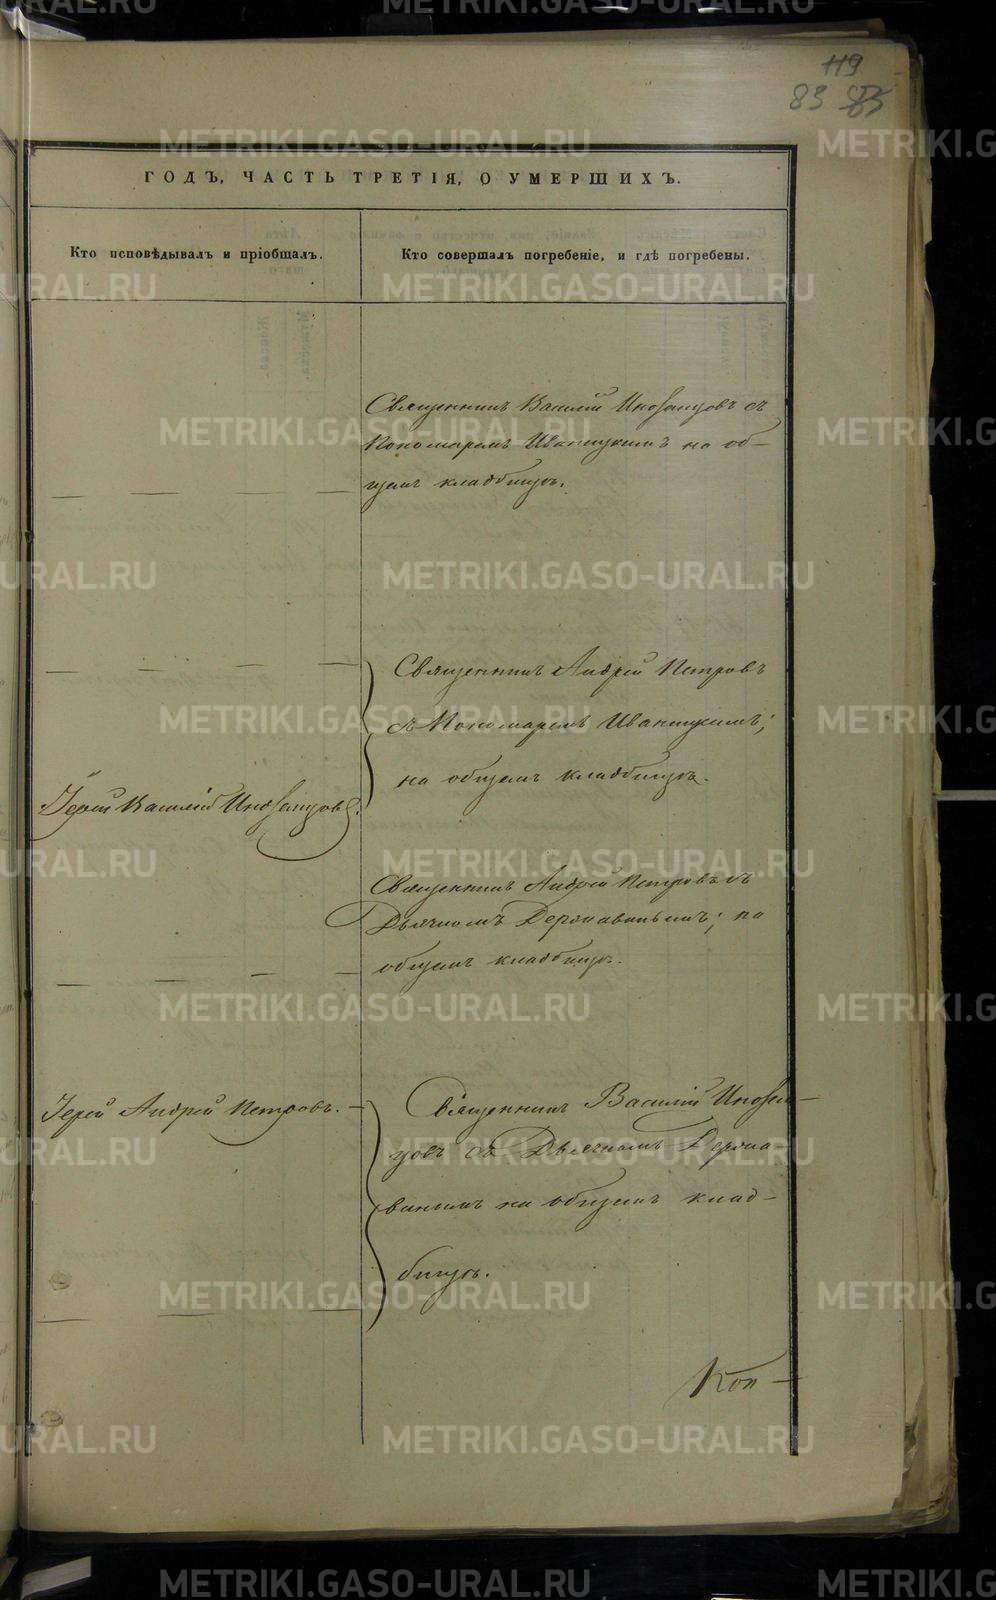 119
83 83
ГОДЪ, ЧАСТЬ ТРЕТІЯ, О УМЕРШИХЪ.
Кто исповѣдывалъ и пріобщалъ.
Кто совершалъ погребеніе, и гдѣ погребены.
Священникъ Василій Иноземцовъ съ
Пономаремъ Иваницкимъ на об-
щемъ кладбищѣ.
Священникъ Андрей Петровъ
съ Пономаремъ Иваницкимъ;
на общемъ кладбищѣ.
Іерей Василій Иноземцовъ.
Священникъ Андрей Петровъ съ
Дьячкомъ Державинымъ; на
общемъ кладбищѣ.
Іерей Андрей Петровъ.
Священникъ Василій Инозем-
цовъ съ Дьячкомъ Держа
винымъ на общемъ клад-
бищѣ.
Коп-
METRIKI.GASO-URAL.RU